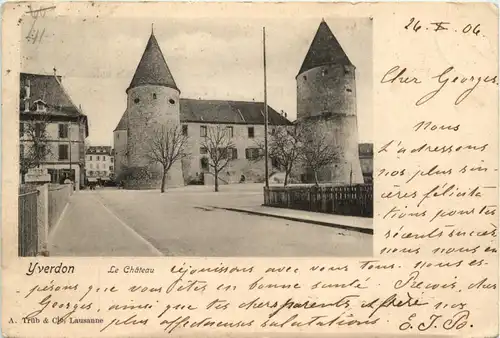 26 - X - 06
Cher Georges.
Nous
t'adressons
nos plus sin-
cères félicita-
tions pour tes
récents succès
nous nous en
Yverdon Le Château réjouissons avec vous tous. Nous es-
pérons que vous êtes en bonne santé. Reçois, cher
Georges, ainsi que tes chers parents et frère nos
A. Trüb & Cie, Lausanne plus affectueuses salutations. E. J. B.